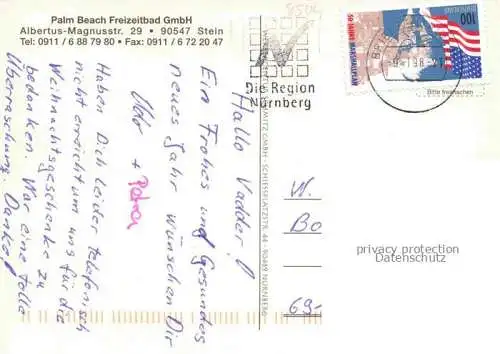 Palm Beach Freizeitbad GmbH
Albertus-Magnusstr. 29 • 90547 Stein
Tel: 0911 / 6 88 79 80 • Fax: 0911 / 6 72 20 47
Hallo Vadder!
Ein Frohes und Gesundes
neues Jahr wünschen Dir
Udo + Petra
Haben Dich leider telefonisch
nicht erreicht um uns für die
Weihnachtsgeschenke zu
bedanken. War eine tolle
Überraschung. Danke!
Die Region
Nürnberg
100
50 JAHRE MARSHALLPLAN
Bitte freimachen
W.
Bo
69-
privacy protection
Datenschutz